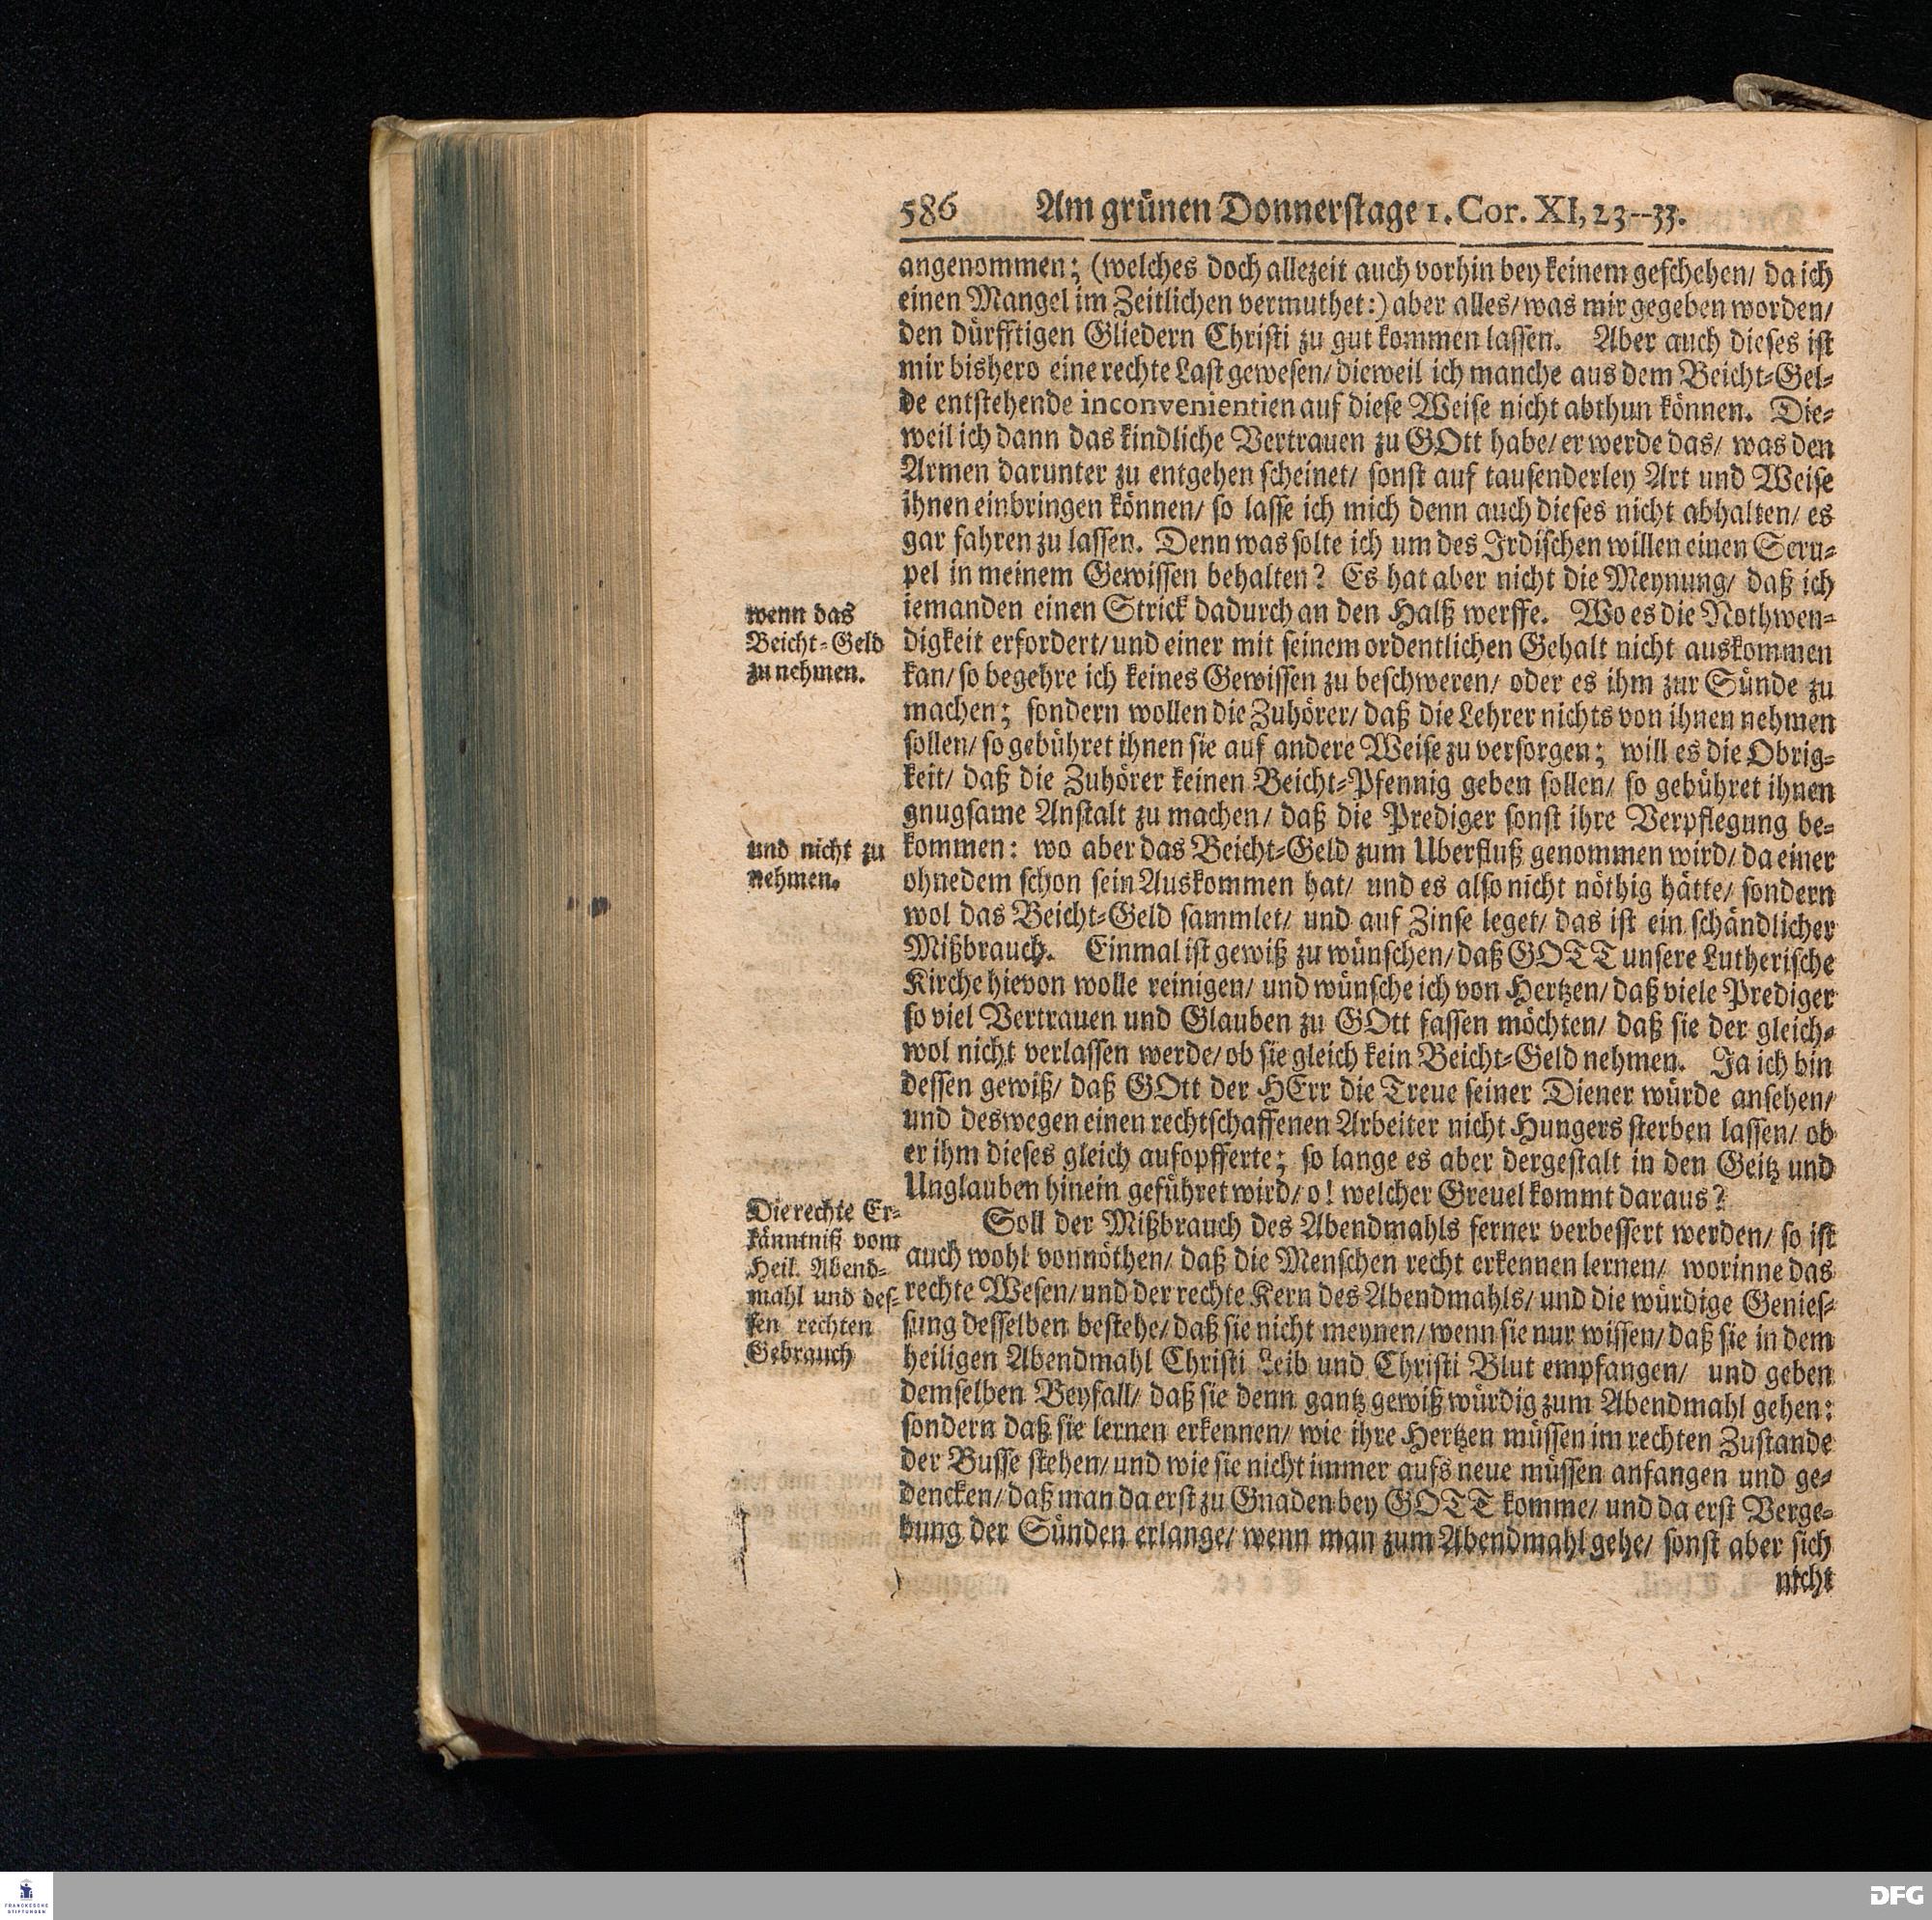 586 Am grünen Donnerstage 1. Cor. XI, 23--33.
angenommen; (welches doch allezeit auch vorhin bey keinem geschehen/ da ich
einen Mangel im Zeitlichen vermuthet:) aber alles/ was mir gegeben worden/
den dürfftigen Gliedern Christi zu gut kommen lassen. Aber auch dieses ist
mir bishero eine rechte Last gewesen/ dieweil ich manche aus dem Beicht-Gel-
de entstehende inconvenientien auf diese Weise nicht abthun können. Die-
weil ich dann das kindliche Vertrauen zu GOtt habe/ er werde das/ was den
Armen darunter zu entgehen scheinet/ sonst auf tausenderley Art und Weise
ihnen einbringen können/ so lasse ich mich denn auch dieses nicht abhalten/ es
gar fahren zu lassen. Denn was solte ich um des Irdischen willen einen Scru-
pel in meinem Gewissen behalten? Es hat aber nicht die Meynung/ daß ich
iemanden einen Strick dadurch an den Halß werffe. Wo es die Nothwen-
digkeit erfordert/ und einer mit seinem ordentlichen Gehalt nicht auskommen
kan/ so begehre ich keines Gewissen zu beschweren/ oder es ihm zur Sünde zu
machen; sondern wollen die Zuhörer/ daß die Lehrer nichts von ihnen nehmen
sollen/ so gebühret ihnen sie auf andere Weise zu versorgen; will es die Obrig-
keit/ daß die Zuhörer keinen Beicht-Pfennig geben sollen/ so gebühret ihnen
gnugsame Anstalt zu machen/ daß die Prediger sonst ihre Verpflegung be-
kommen: wo aber das Beicht-Geld zum Uberfluß genommen wird/ da einer
ohnedem schon sein Auskommen hat/ und es also nicht nöthig hätte/ sondern
wol das Beicht-Geld sammlet/ und auf Zinse leget/ das ist ein schändlicher
Mißbrauch. Einmal ist gewiß zu wünschen/ daß GOTT unsere Lutherische
Kirche hievon wolle reinigen/ und wünsche ich von Hertzen/ daß viele Prediger
so viel Vertrauen und Glauben zu GOtt fassen möchten/ daß sie der gleich-
wol nicht verlassen werde/ ob sie gleich kein Beicht-Geld nehmen. Ja ich bin
dessen gewiß/ daß GOtt der HErr die Treue seiner Diener würde ansehen/
und deswegen einen rechtschaffenen Arbeiter nicht Hungers sterben lassen/ ob
er ihm dieses gleich aufopfferte; so lange es aber dergestalt in den Geitz und
Unglauben hinein geführet wird/ o! welcher Greuel kommt daraus?
Soll der Mißbrauch des Abendmahls ferner verbessert werden/ so ist
auch wohl vonnöthen/ daß die Menschen recht erkennen lernen/ worinne das
rechte Wesen/ und der rechte Kern des Abendmahls/ und die würdige Genies-
sung desselben bestehe/ daß sie nicht meynen/ wenn sie nur wissen/ daß sie in dem
heiligen Abendmahl Christi Leib und Christi Blut empfangen/ und geben
demselben Beyfall/ daß sie denn gantz gewiß würdig zum Abendmahl gehen:
sondern daß sie lernen erkennen/ wie ihre Hertzen müssen im rechten Zustande
der Busse stehen/ und wie sie nicht immer aufs neue müssen anfangen und ge-
dencken/ daß man da erst zu Gnaden bey GOTT komme/ und da erst Verge-
bung der Sünden erlange/ wenn man zum Abendmahl gehe/ sonst aber sich
nicht
wenn das
Beicht-Geld
zu nehmen.
und nicht zu
nehmen.
Die rechte Er-
känntniß vom
Heil. Abend-
mahl und des-
sen rechten
Gebrauch
FRANCKESCHE
STIFTUNGEN
DFG